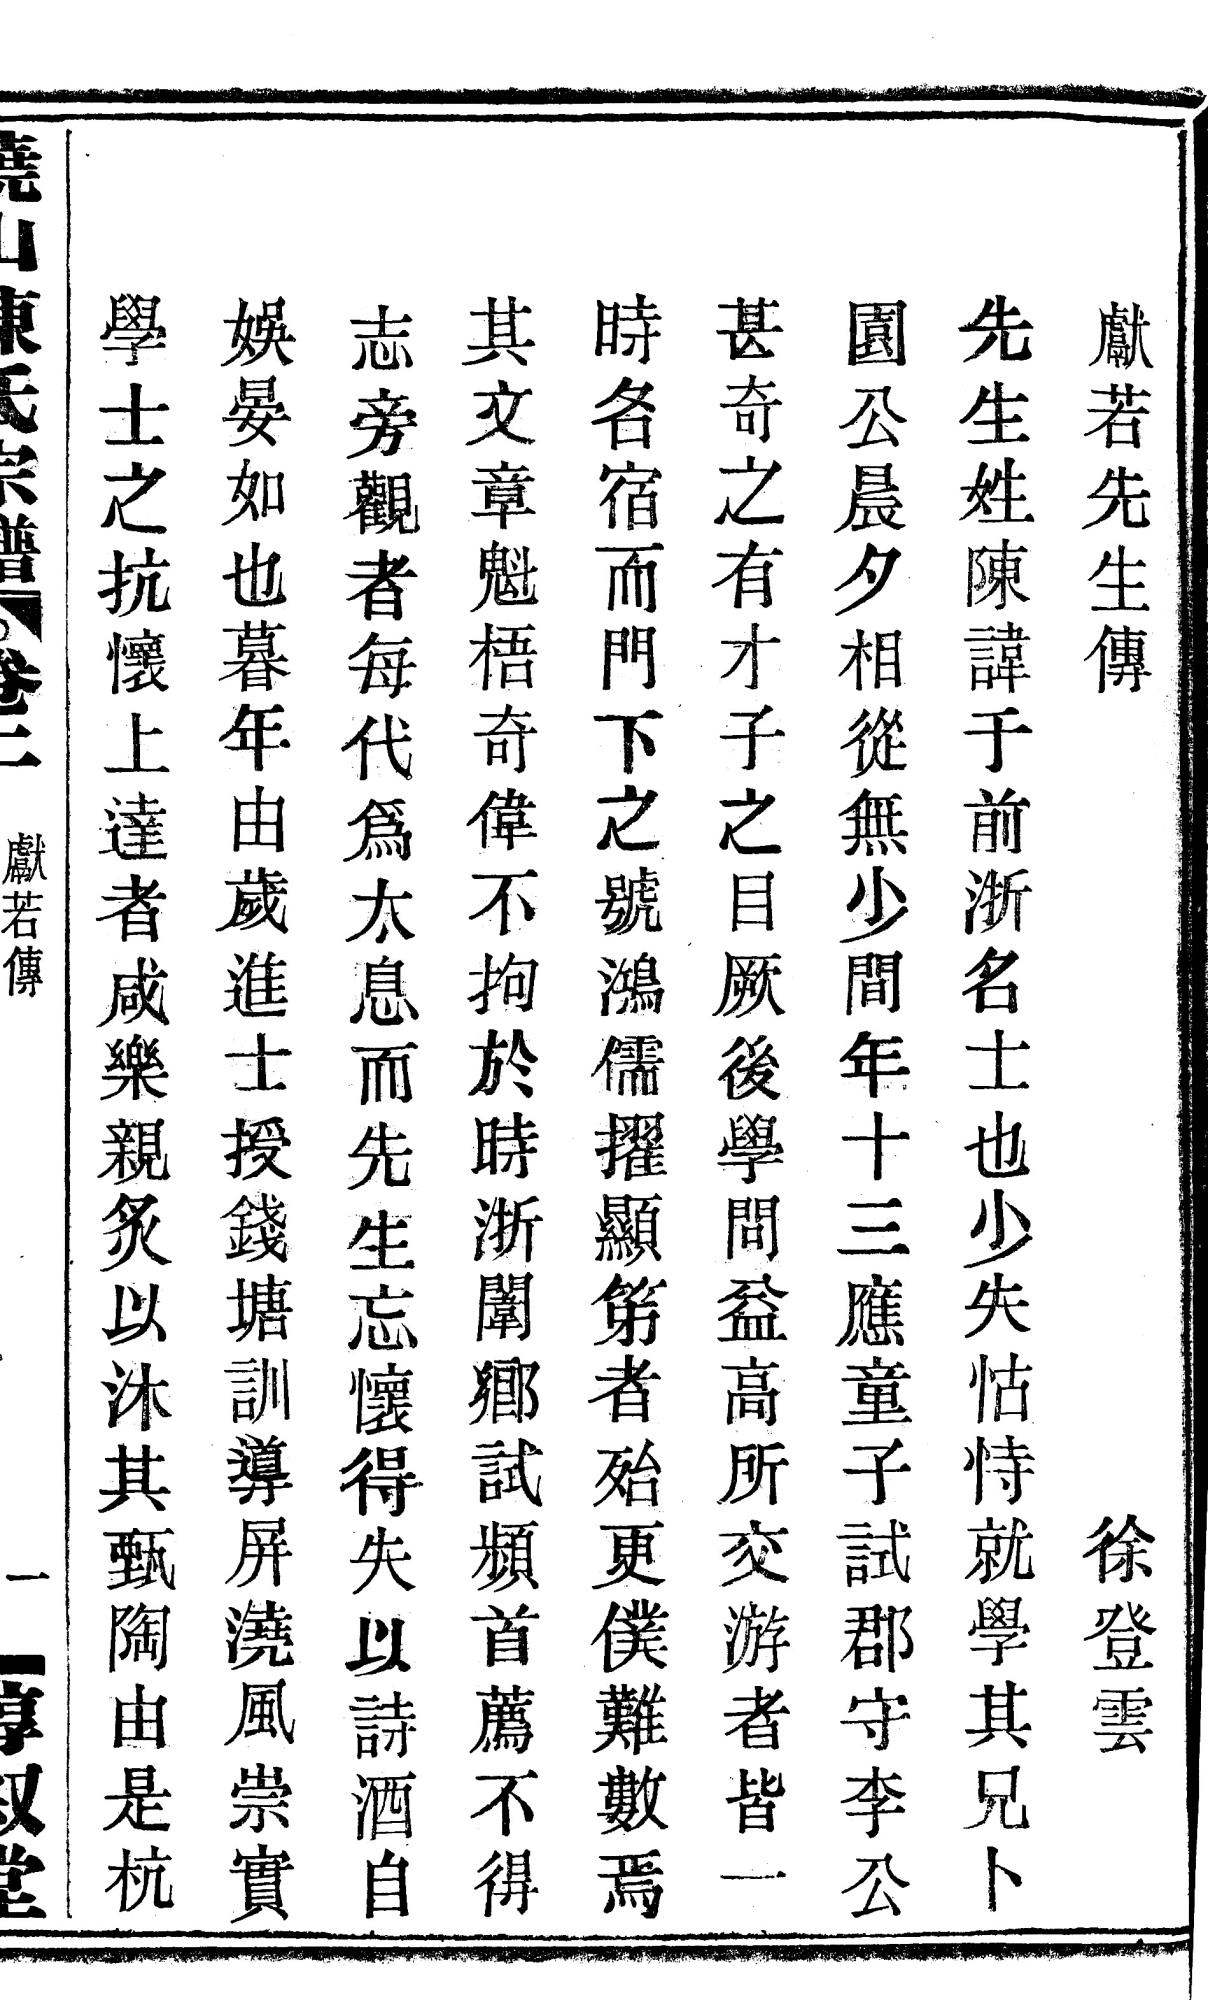 獻若先生傳　徐登雲
先生姓陳諱于前浙名士也少失怙恃就學其兄卜
園公晨夕相從無少間年十三應童子試郡守李公
甚奇之有才子之目厥後學問益高所交游者皆一
時名宿而門下之號鴻儒擢顯第者殆更僕難數焉
其文章魁梧奇偉不拘於時浙闈鄉試頻首薦不得
志旁觀者每代爲太息而先生忘懷得失以詩酒自
娛晏如也暮年由歲進士授錢塘訓導屏澆風崇實
學士之抗懷上達者咸樂親炙以沐其甄陶由是杭
陳氏宗譜 卷二 獻若傳 一 惇敘堂